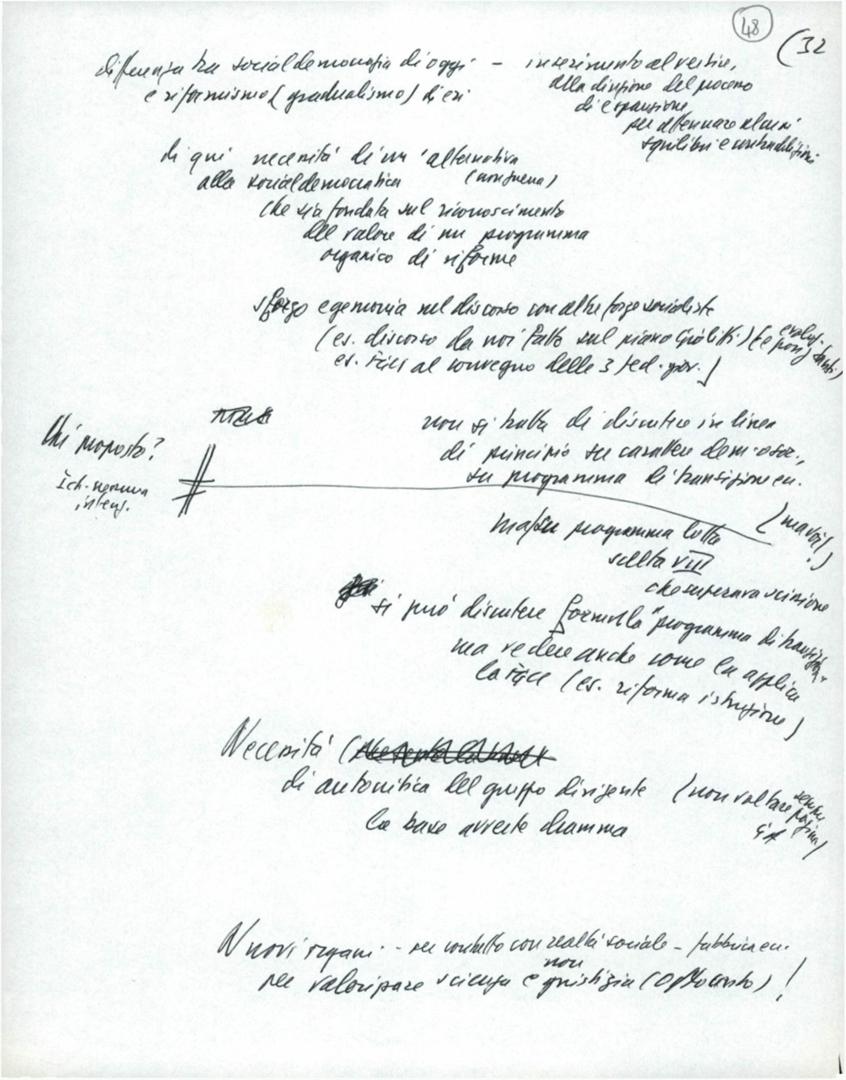 48
(32
differenza tra socialdemocrazia di oggi – inserimento al vertice,
e riformismo (gradualismo) di ieri
alla direzione del processo
di espansione,
per attenuare alcuni
squilibri e contraddizioni
di qui necessità di un'alternativa
alla socialdemocratica
che sia fondata sul riconoscimento
del valore di un programma
organico di riforme
sforzo egemonia nel discorso con altre forze socialiste
(es. discorso da noi fatto sul piano Giolitti)
es. al convegno delle 3 fed. giov.
non si tratta di discutere in linea
di principio su carattere
su programma di transizione ecc.
Chi proposto?
ma su programma lotta
scelta VIII
che superava scissione
si può discutere formula "programma di transiz.
ma vedere anche come la applica
la (es. riforma istruzione)
Necessità (
di autocritica del gruppo dirigente (non voltare sempre pagina)
la base avverte dramma
Nuovi organi – per contatto con realtà sociale – fabbrica ecc.
non
per valorizzare scienza e giustizia !